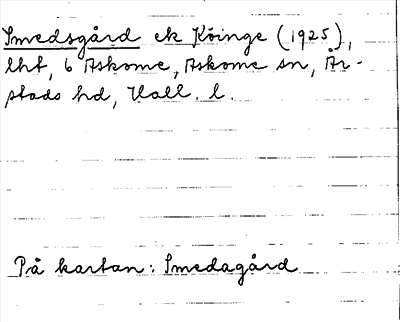 Smedsgård ek Köinge (1925),
lht, 6 Askome, Askome sn, År-
stads hd, Hall. l.
På kartan: Smedagård